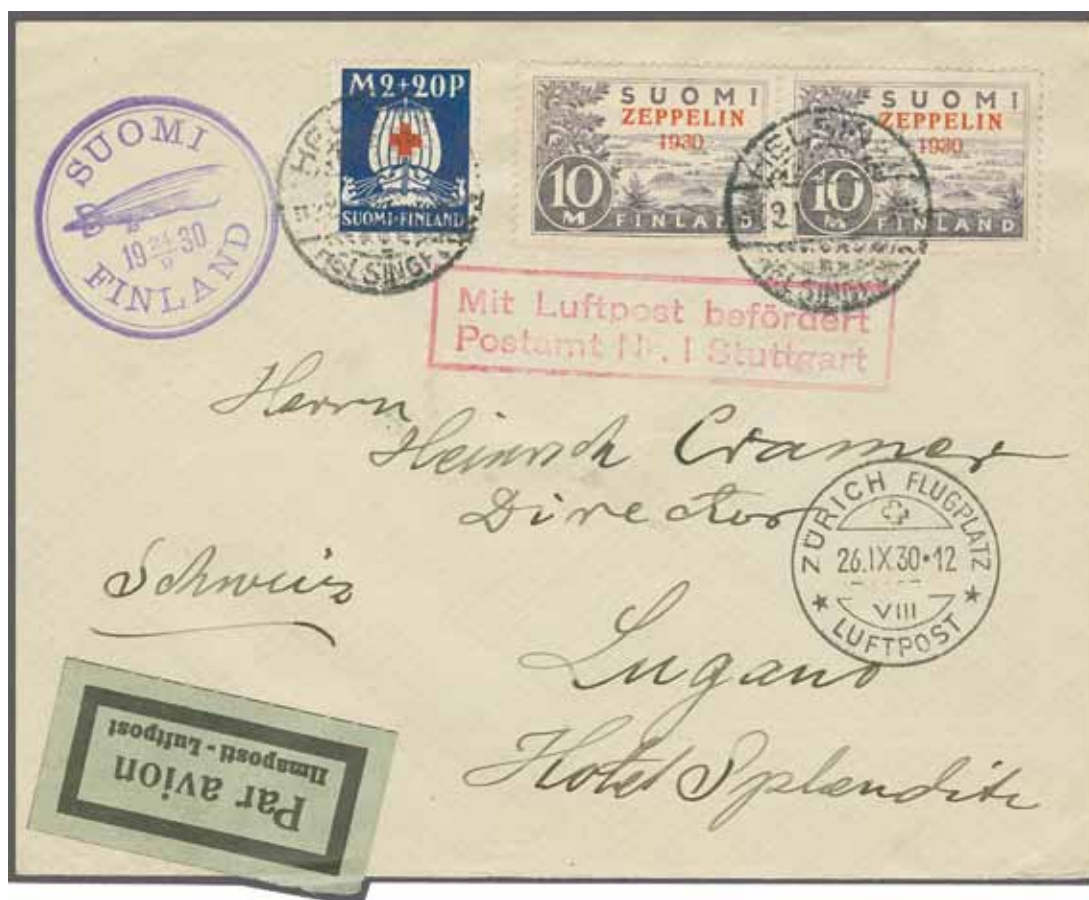 SUOMI
19 24/9 30
FINLAND
M2+20P
SUOMI·FINLAND
SUOMI
ZEPPELIN
1930
10
M
FINLAND
SUOMI
ZEPPELIN
1930
10
FINLAND
HELSINKI
Mit Luftpost befördert
Postamt Nr. 1 Stuttgart
Herrn
Heinrich Cramer
Director
Schweiz
Lugano
Hotel Splendite
ZÜRICH FLUGPLATZ
26.IX.30·12
VIII
LUFTPOST
Par avion
Ilmaposti - Luftpost